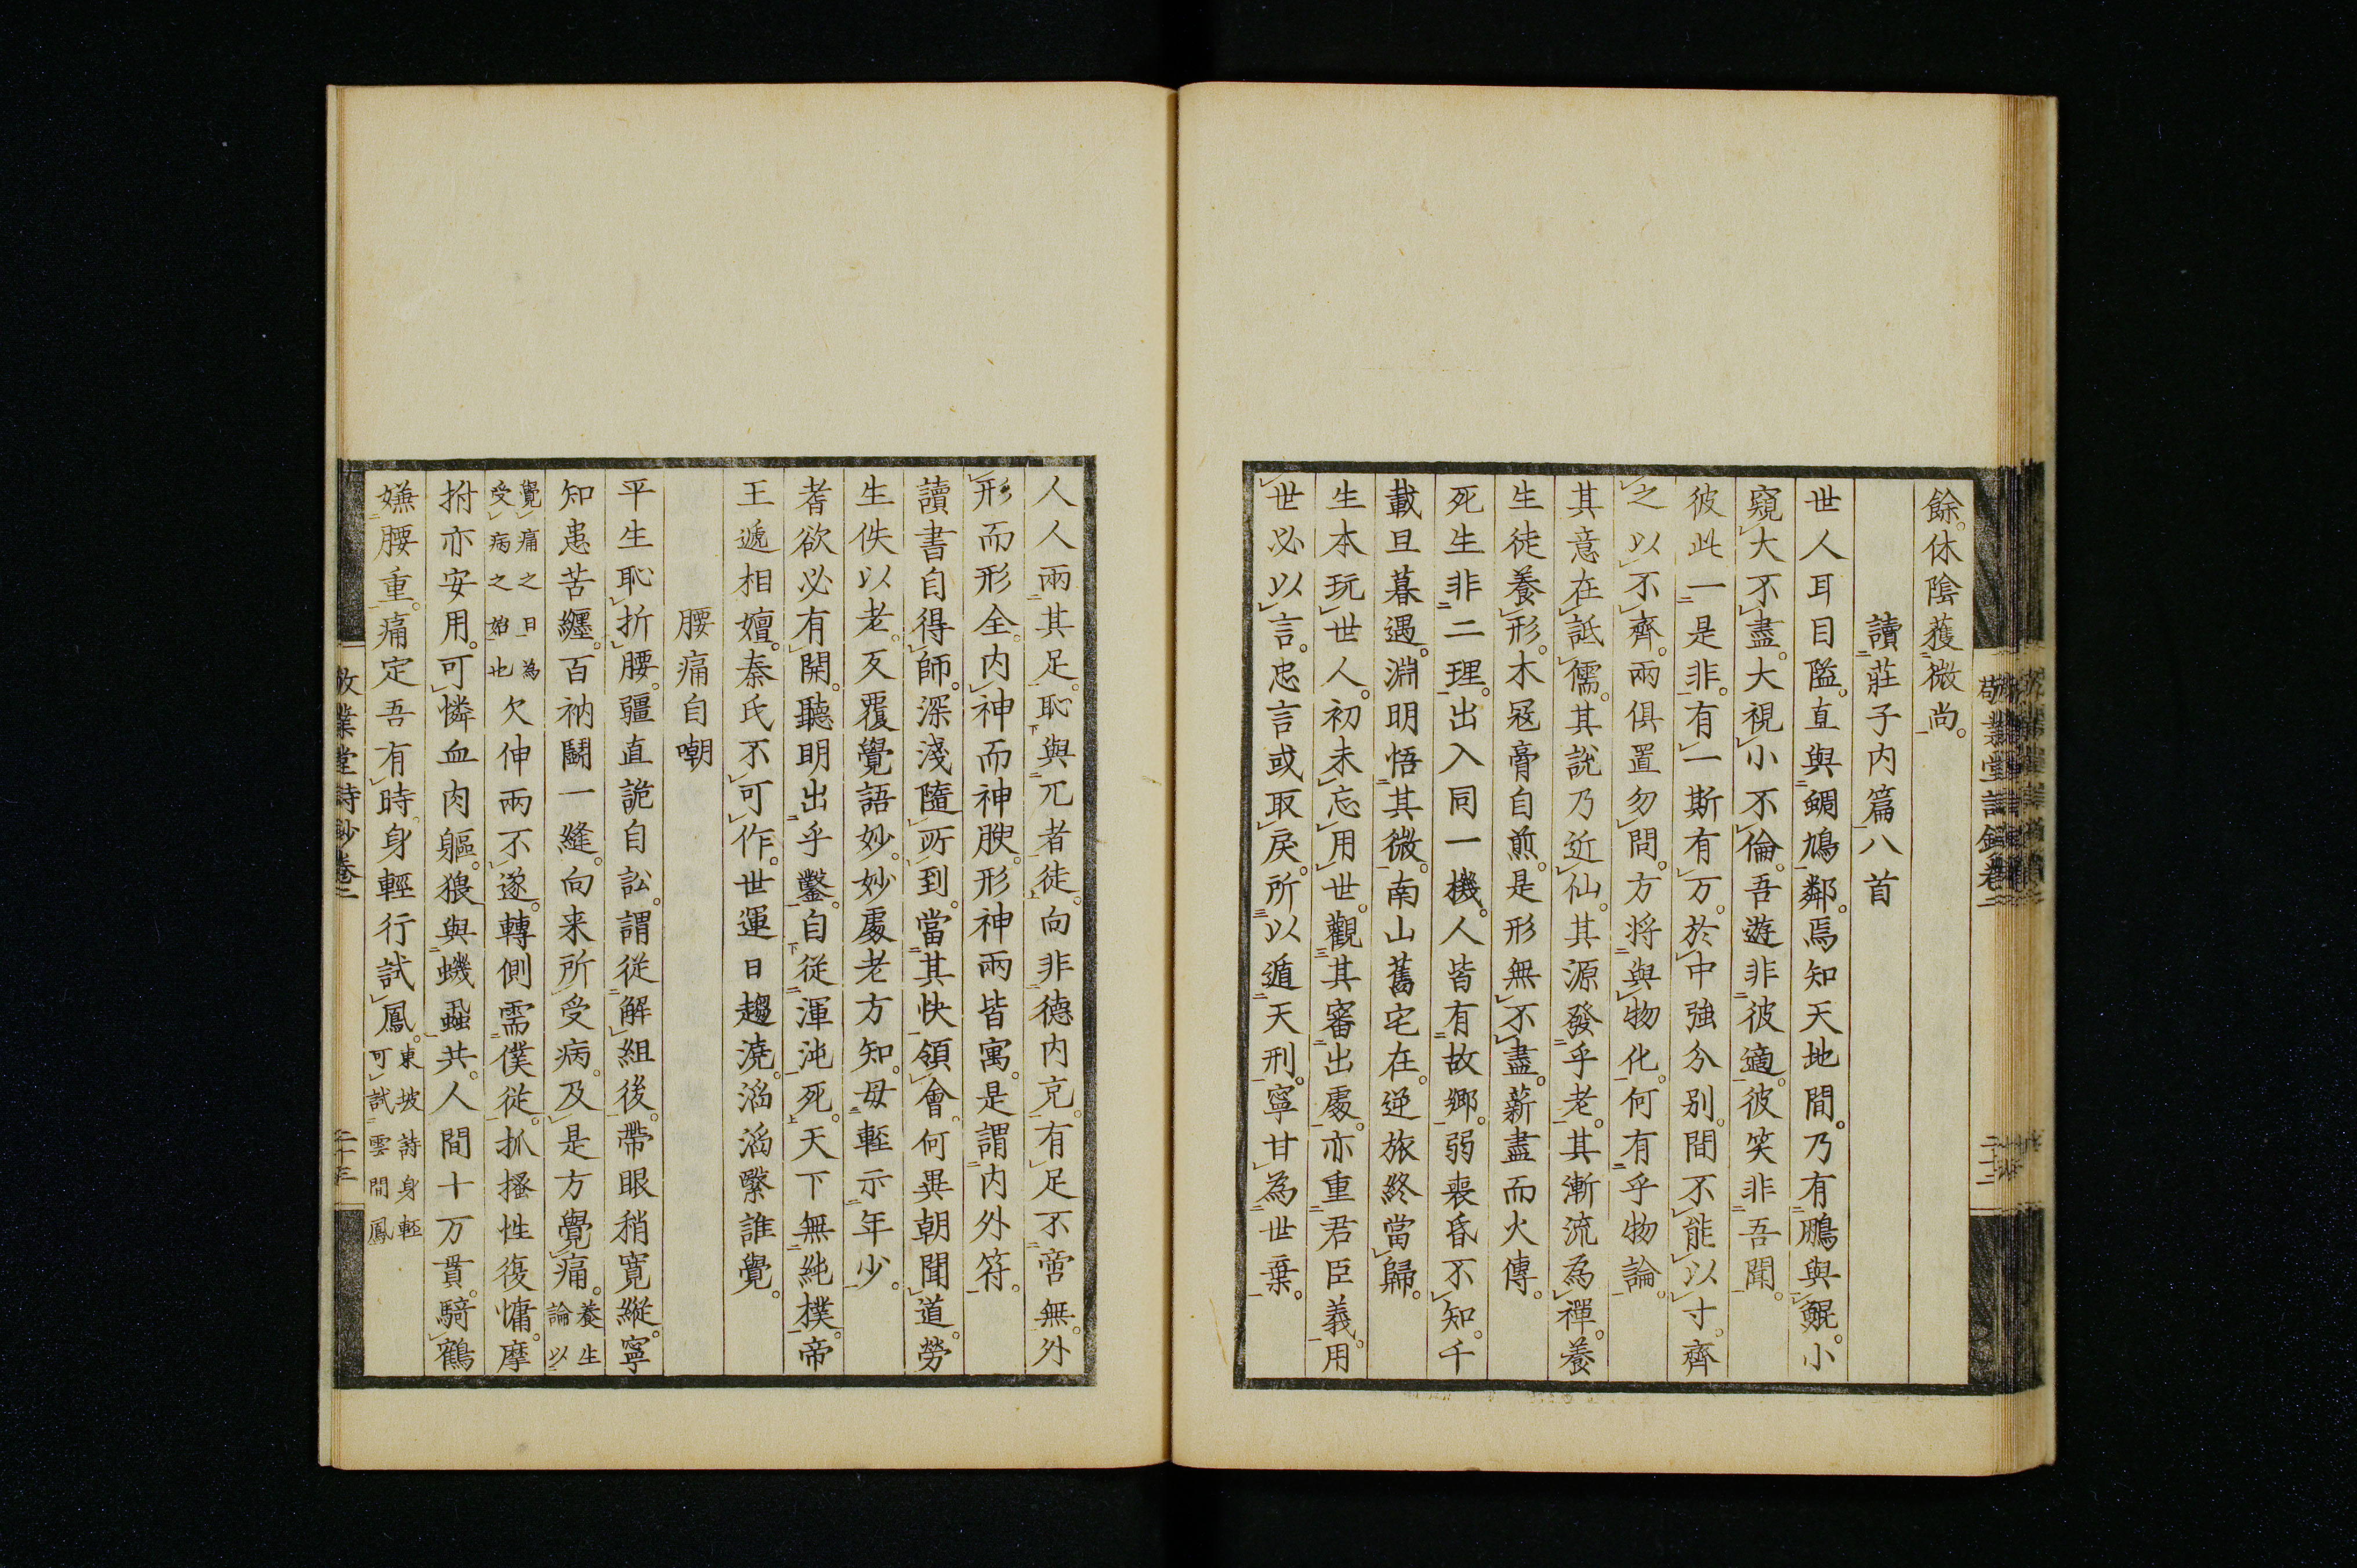 餘。休陰獲微尚。
讀莊子内篇八首
世人耳目隘。直與鯛鳩鄰。焉知天地間。乃有鵬與鯤。小
窺大不盡。大視小不倫。吾遊非彼適。彼笑非吾聞。
彼此一是非。有一斯有万。於中強分别。間不能以寸。齊
之以不齊。兩俱置勿問。方将與物化。何有乎物論。
其意在詆儒。其說乃近仙。其源發乎老。其漸流為禪。養
生徒養形。木寇膏自煎。是形無不盡。薪盡而火傳。
死生非二理。出入同一機。人皆有故鄉。弱喪昏不知。千
載旦暮遇。淵明悟其微。南山舊宅在。逆旅終當歸。
生本玩世人。初未忘用世。觀其審出處。亦重君臣義。用
世必以言。忠言或取戾。所以遁天刑。寧甘為世棄。
人人兩其足。恥與兀者徒。向非德内充。有足不啻無。外
形而形全。内神而神腴。形神兩皆寓。是謂内外符。
讀書自得師。深淺隨所到。當其快領會。何異朝聞道。勞
生佚以老。反覆覺語妙。妙處老方知。毋輕示年少。
耆欲必有開。聽明出乎鑿。自從渾沌死。天下無純樸。帝
王遞相嬗。秦氏不可作。世運日趨澆。滔滔緊誰覺。
腰痛自嘲
平生恥折腰。疆直詭自訟。謂從解組後。帶眼稍寬縱。寧
知患苦纏。百衲鬪一縫。向来所受病。及是方覺痛。養生
論以
覺痛之日為
受病之始也
欠伸兩不遂。轉側需僕從。抓搔性復慵。摩
拊亦安用。可憐血肉軀。猥與蟣蝨共。人間十万貫。騎鶴
嫌腰重。痛定吾有時。身輕行試鳳。東坡詩身輕
可試雲間鳳
敬業堂詩鈔卷二